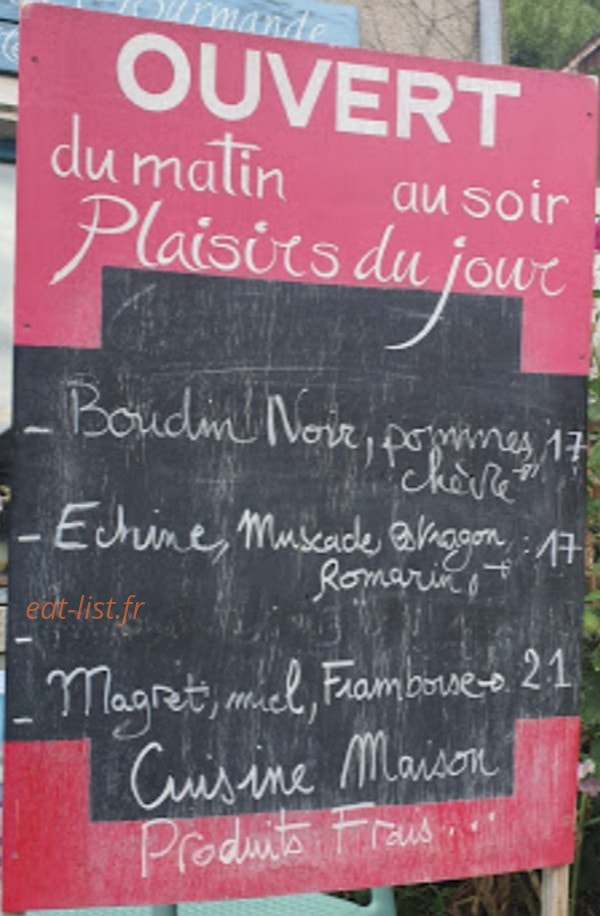 Gourmande
OUVERT
du matin au soir
Plaisirs du jour
- Boudin Noir, pommes, 17
chèvre
- Echine, Muscade, Estragon, : 17
Romarin,
eat-list.fr
-
- Magret, miel, Framboise → 21
Cuisine Maison
Produits Frais...